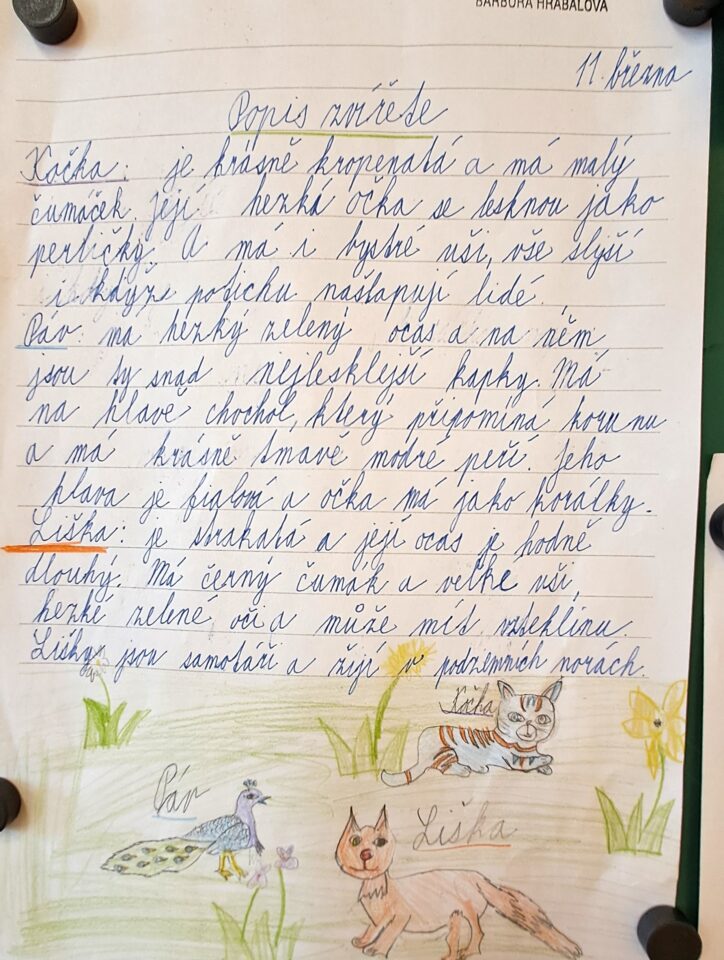 BARBORA HRABALOVÁ
11. března
Popis zvířete
Kočka: je krásně kropenatá a má malý
čumáček. Její hezká očka se lesknou jako
perličky. A má i bystré uši, vše slyší
i když potichu našlapují lidé.
Páv: ma hezký zelený ocas a na něm
jsou ty snad nejlesklejší kapky. Má
na hlavě chochol, který připomíná korunu
a má krásně tmavě modré peří. Jeho
hlava je fialová a očka má jako korálky.
Liška: je strakatá a její ocas je hodně
dlouhý. Má černý čumák a velke uši,
hezké zelené oči a může mít vzteklinu.
Lišky jsou samotáři a žijí v podzemních norách.
Kočka
Páv
Liška